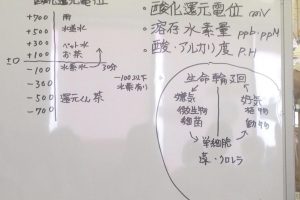 酸化還元電位
+700 雨
+500 水道水
+300 ペット水
+100 お茶
±0
-100 水素水 30分
-300
-500 還元くん茶
-700
-100以下
水素有り
・酸化還元電位 mV
・溶存水素量 ppb・ppM
・酸・アルカリ度 P.H
生命輪廻
嫌気 好気
微生物 植物
細菌 動物
単細胞
藻・クロレラ